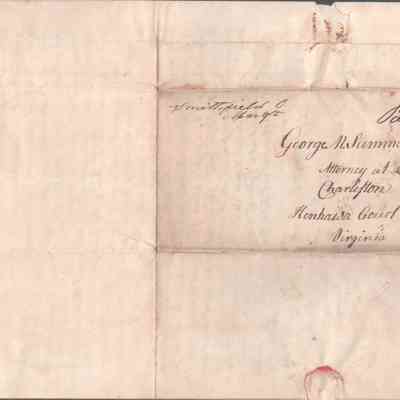 Smithfield O
March 9th
Pa
George W. Summe
Attorney at L
Charleston
Kenhawa Court
Virginia